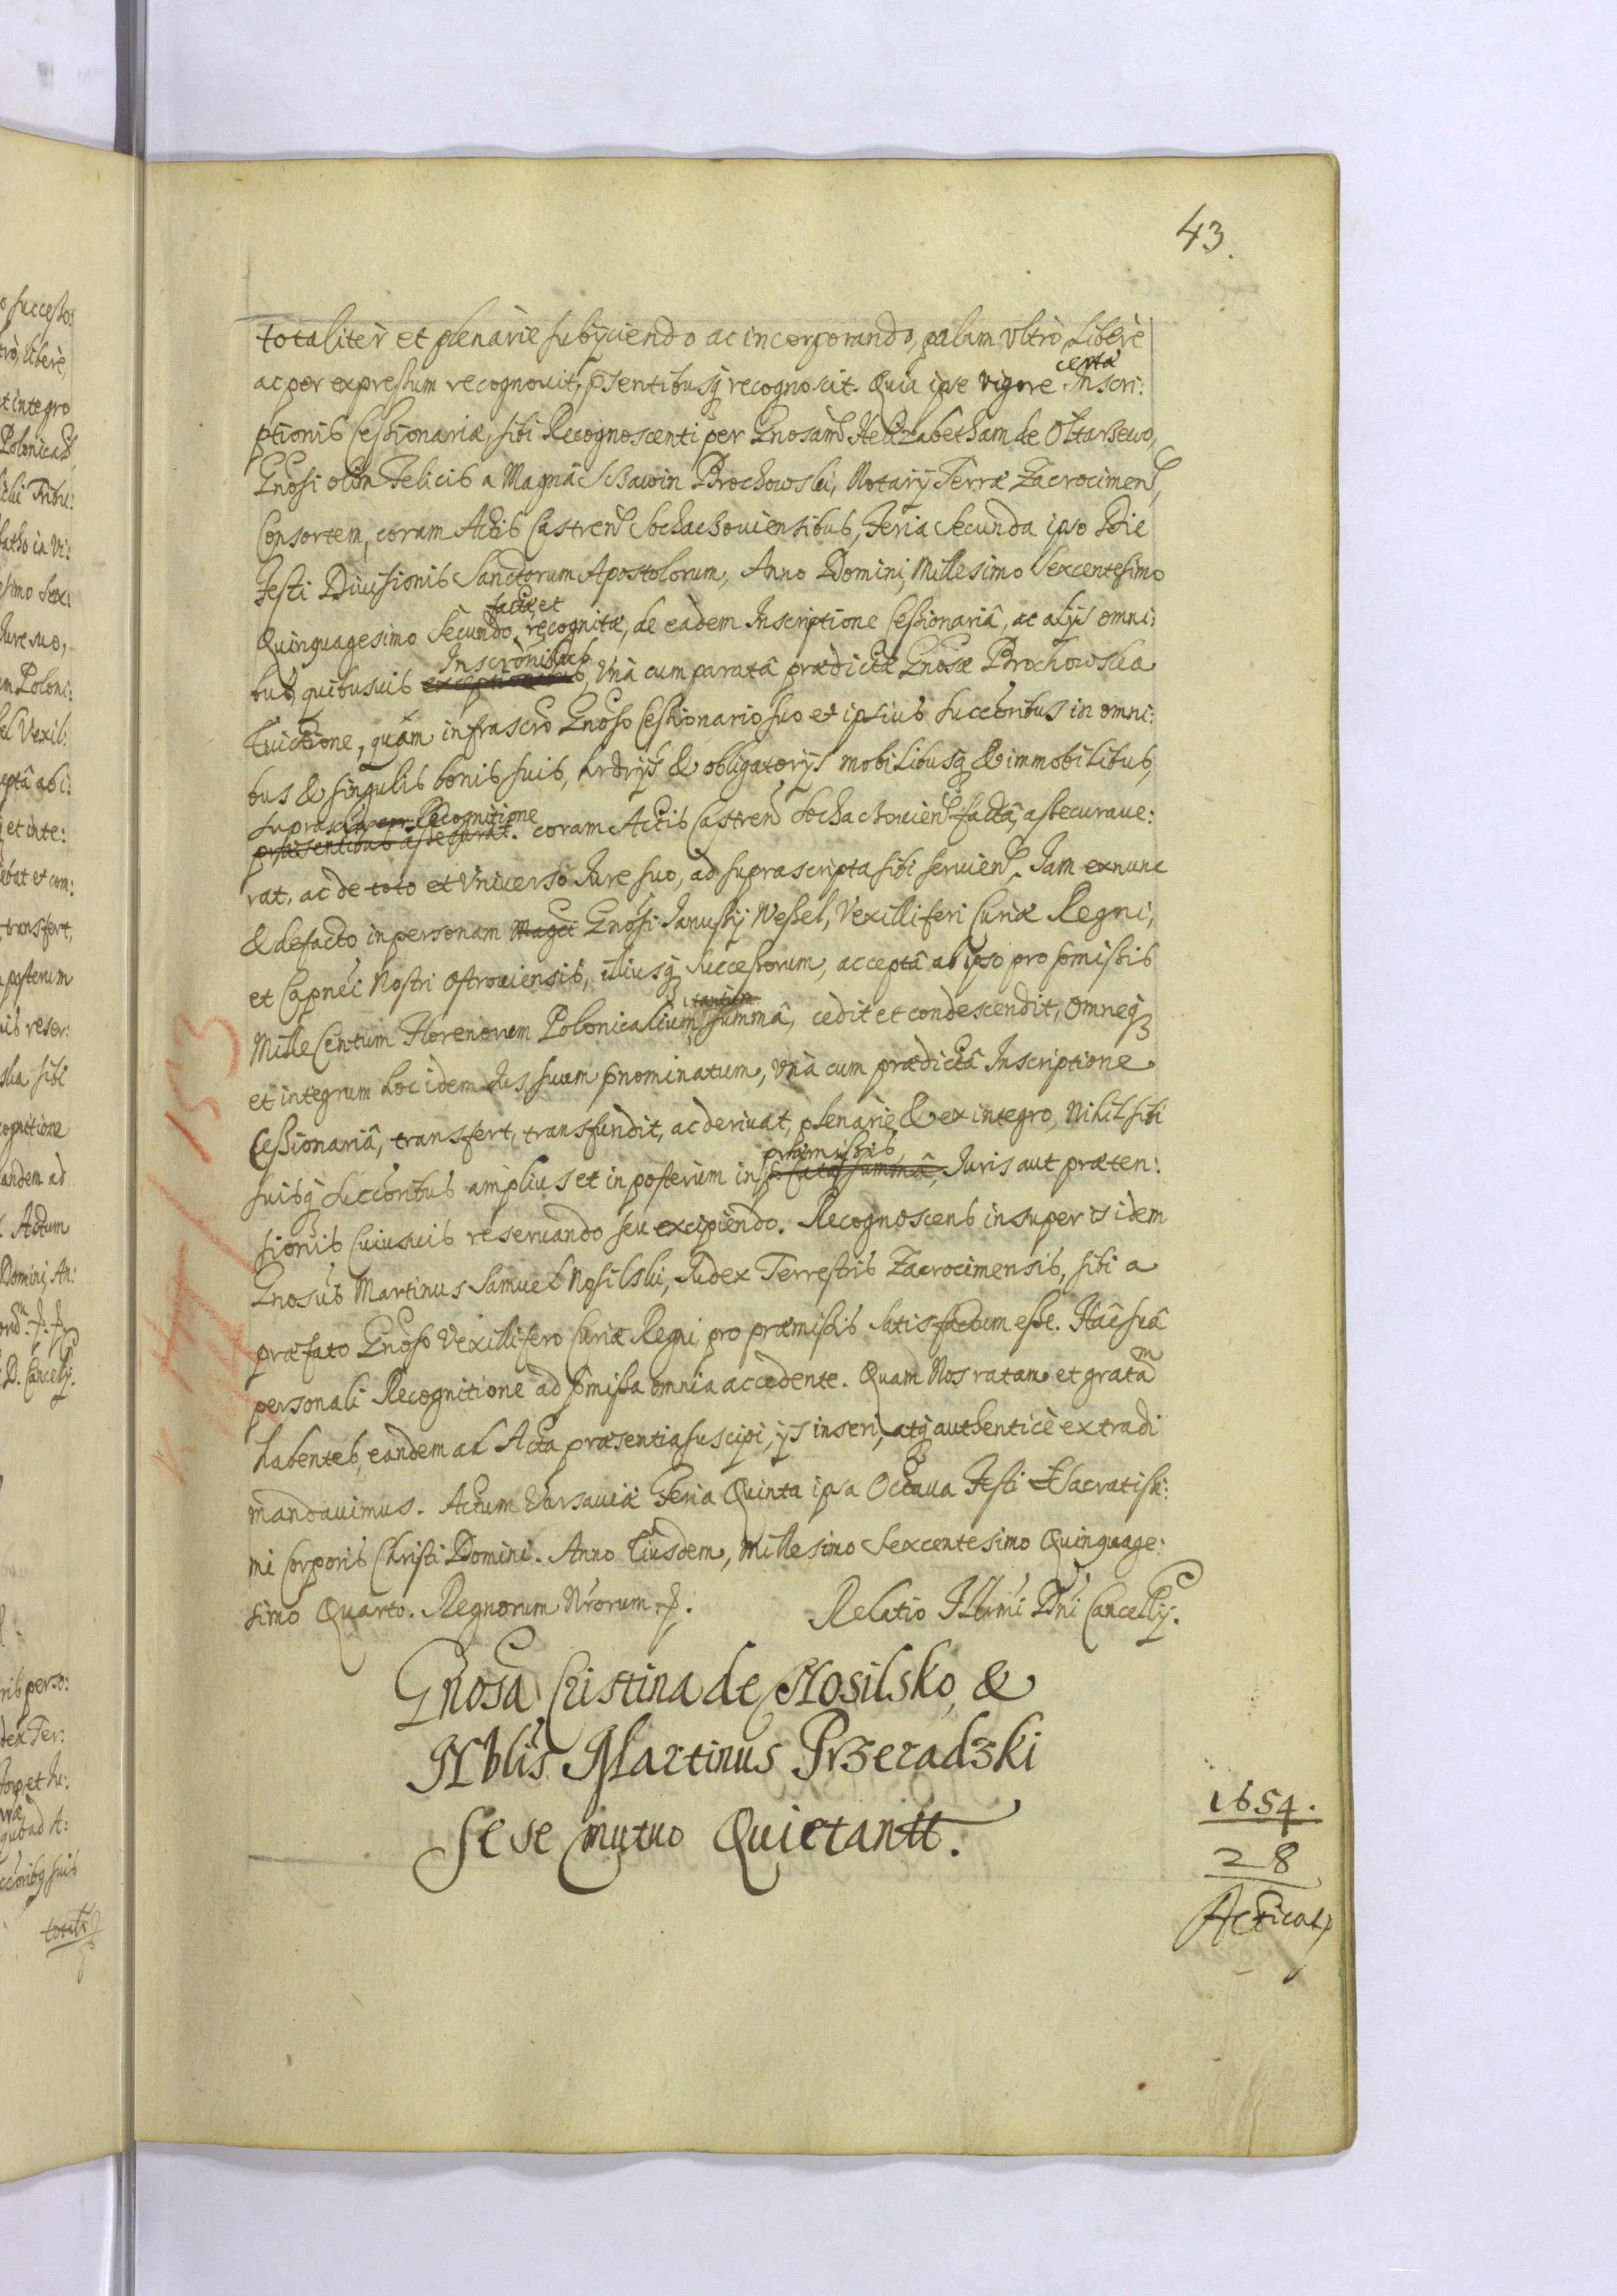 43.
totalitèr et plenàrie subijciendo ac incorporando, palam ultrò, Liberè
ac per expressum recognovit, p̄sentibusq́ recognoscit. Quia ipse vigore certæ Inscri:
ptionis Cessionariæ, sibi Recognoscenti per Gnosam Helizabetham de Ołtarzewo,
Gnosi olim Felicis a Magnâ Brochowski, Notarÿ Terræ Zacrocimens,
Consortem, coram Actis Castren Sochaczoviensibus, Feria Secunda ipso Die
Festi Divisionis Sanctorum Apostolorum, Anno Domini, Millesimo Sexcentesimo
Quinquagesimo Secundo, factæ et recognitæ, de eâdem Inscriptione Cessionariâ, ac alÿs omni:
bus, quibusvis Inscronibus, Unà cum paratâ prædictæ Gnosæ Brochowska
Evictione, quam infrascro Gnoso Cessionario suo et ipsius succoribus in omni:
bus & singulis bonis suis, hrdrÿs & obligatorÿs mobilibusq́ & immobilibus,
suprascripta Recognitione præsentibus assecurat. coram Actis Castren Sochaczovien factâ, assecurave:
rat, ac de toto et Universo Iure suo, ad suprascripta sibi servien. Iam exnunc
& defacto in personam Magci Gnosi Janussÿ Wessel, Vexilliferi Curiæ Regni,
et Capnei Nostri Ostroviensis, illiusq́ Successorum, acceptâ ab ipso pro p̄missis
Mille Centum Florenorum Polonicalium, tantum summâ, cedit et condescendit, Omneq́
et integrum hoc idem Ius suum p̄nominatum, unà cum prædictâ Inscriptione
Cessionariâ, transfert, transfundit, ac derivat, plenàrie & ex integro, Nihil sibi
suisq́ succoribus ampliùs et in posterum in præmissis, summâ, Iuris aut præten:
sionis cuiusvis reservando seu excipiendo. Recognoscens insuper is idem
Gnosus Martinus Samuel Nosilski, Iudex Terrestris Zacrocimensis, sibi a
præfato Gnoso Vexillifero Curiæ Regni, pro præmissis satisfactum esse. Hâc suâ
personali Recognitione ad p̄missa omnia accedente. Quam Nos ratam et gratam
habentes, eandem ad Acta præsentia suscipi, ÿs inseri, atq́ authenticè extradi
mandavimus. Actum Varsaviæ Feria Quinta ipsa Octava Festi Sacratissi:
mi Corporis Christi Domini. Anno Eiusdem, Millesimo Sexcentesimo Quinquage:
simo Quarto. Regnorum Nrorum. Relatio Illrmi Dni Cancellÿ.
Gnosa Cristina de Nosilsko, &
Nblis Martinus Przeradzki
sese mutuo Quietantt.
1654.
28
Acticat